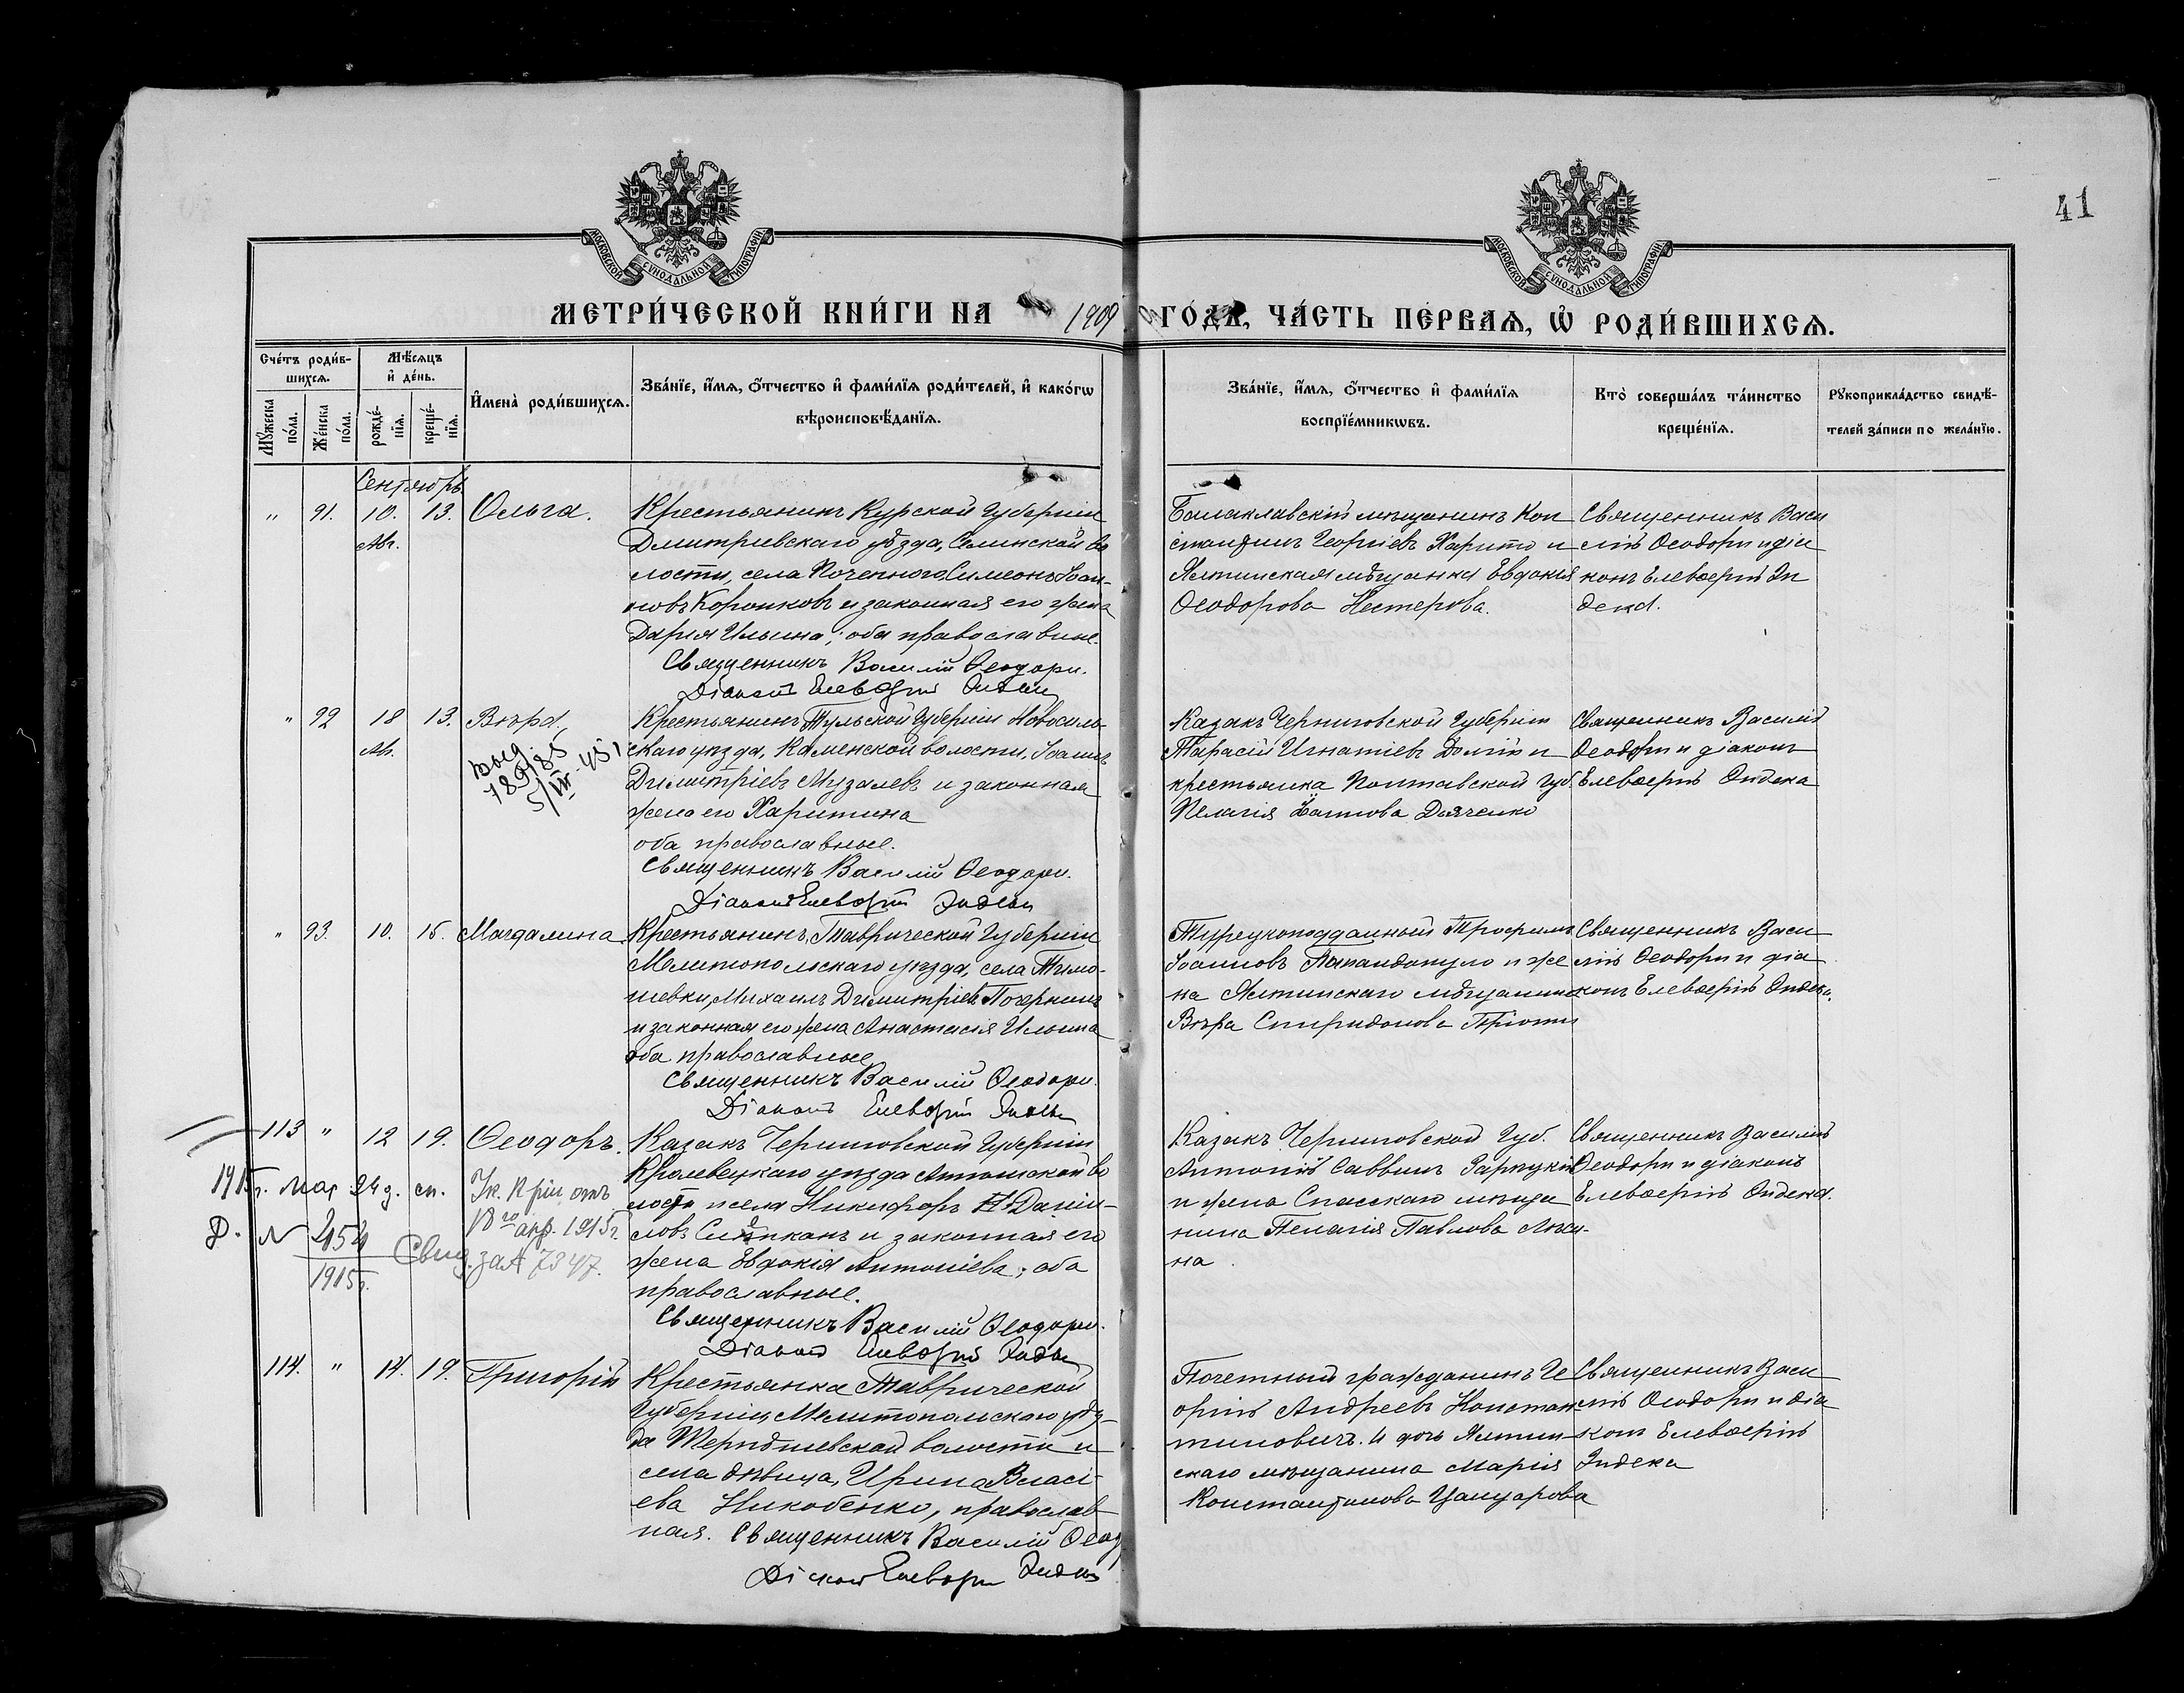 41
МОСКОВСКОЙ СѴНОДАЛЬНОЙ ТИПОГРАФІИ
МОСКОВСКОЙ СѴНОДАЛЬНОЙ ТИПОГРАФІИ
МЕТРИ́ЧЕСКОЙ КНИ́ГИ НА 1909 ГО́ДЪ, ЧА́СТЬ ПЕ́РВАѦ, Ѽ РОДИ́ВШИХСѦ.
Сче́тъ роди́в-
шихсѧ.
Мꙋ́жеска по́ла.
Же́нска по́ла.
Мѣ́сѧцъ
и҆ де́нь.
рожде́-
нїѧ.
креще́-
нїѧ.
И҆мена̀ роди́вшихсѧ.
Зва́нїе, и҆́мѧ, ѻ҆́тчество и҆ фами́лїѧ роди́телей, и҆ како́гѡ
вѣроисповѣ́данїѧ.
Зва́нїе, и҆́мѧ, ѻ҆́тчество и҆ фами́лїѧ
воспрїе́мникѡвъ.
Кто̀ соверша́лъ та́инство
креще́нїѧ.
Рꙋкоприкла́дство свидѣ́-
телей за́писи по жела́нїю.
Сентябрь
" 91. 10. 13. Ольга.
Ав.
Крестьянинъ Курской Губерніи
Дмитріевскаго уѣзда, Селинской во
лости, села Поченного Симеонъ Іоан-
новъ Коротковъ и законная его жена
Дарія Ильина, оба православные.
Священникъ Василій Ѳеодори.
Діаконъ Елевѳерій
Балаклавскій мѣщанинъ Кон
стантинъ Георгіевъ Харито и
Ялтинская мѣщанка Евдокія
Ѳеодорова Нестерова.
Священникъ Васи
лій Ѳеодори и діа
конъ Елевѳерій Эн
дека.
" 92 18 13. Вѣра,
Ав.
выд
18985
5/VII-45
Крестьянинъ Тульской Губерніи Новосиль-
скаго уѣзда, Каменской волости, Іоаннъ
Димитріевъ Музалевъ и законная
жена его Харитина
оба православные.
Священникъ Василій Ѳеодори.
Діаконъ Елевѳерій Эндека
Казакъ Черниговской Губерніи
Тарасій Игнатіевъ Долгій и
крестьянка Полтавской Губ.
Пелагія Дьяченко
Священникъ Василій
Ѳеодори и діаконъ
Елевѳерій Эндека
" 93. 10. 15. Магдалина
Крестьянинъ, Таврической Губерніи
Мелитопольскаго уѣзда, села Тимо-
шевки, Михаилъ Димитріевъ
и законная его жена Анастасія Ильина
оба православные
Священникъ Василій Ѳеодори.
Діаконъ Елевѳерій Эндека
Турецкоподданный Трофимъ
Іоанновъ Папандопуло и же
на Ялтинскаго мѣщанина
Вѣра Спиридонова
Священникъ Васи
лій Ѳеодори и діа
конъ Елевѳерій Эндека.
113 " 12 19. Ѳеодоръ.
1915г. Мар 24 д. сп.
№ 2454
1915г.
Ук. К-ріи отъ
18го апр. 1915г.
Свид. за № 7347.
Казакъ Черниговской Губерніи
Кролевецкаго уѣзда Алтыновской во
лости и села Никифоръ Даніи-
ловъ и законная его
жена Евдокія Антоніева, оба
православные.
Священникъ Василій Ѳеодори.
Діаконъ Елевѳерій Эндека
Казакъ Черниговской Губ.
Антоній Саввинъ
и жена Спасскаго мѣща
нина Пелагія Павлова
на.
Священникъ Василій
Ѳеодори и діаконъ
Елевѳерій Эндека.
114. " 14. 19. Григорій
Крестьянка Таврической
Губерніи, Мелитопольскаго уѣз-
да волости и
села дѣвица, Ирина Власі-
ева Никобенко, православ-
ная. Священникъ Василій Ѳеод
Діаконъ Елевѳерій Эндека
Почетный гражданинъ Ге
оргій Андреевъ Констан-
тиновичъ. И дочь Ялтин-
скаго мѣщанина Марія
Константинова
Священникъ Васи
лій Ѳеодори и діа
конъ Елевѳерій
Эндека